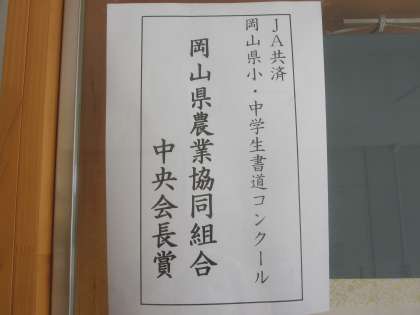 JA共済
岡山県小・中学生書道コンクール
岡山県農業協同組合
中央会長賞